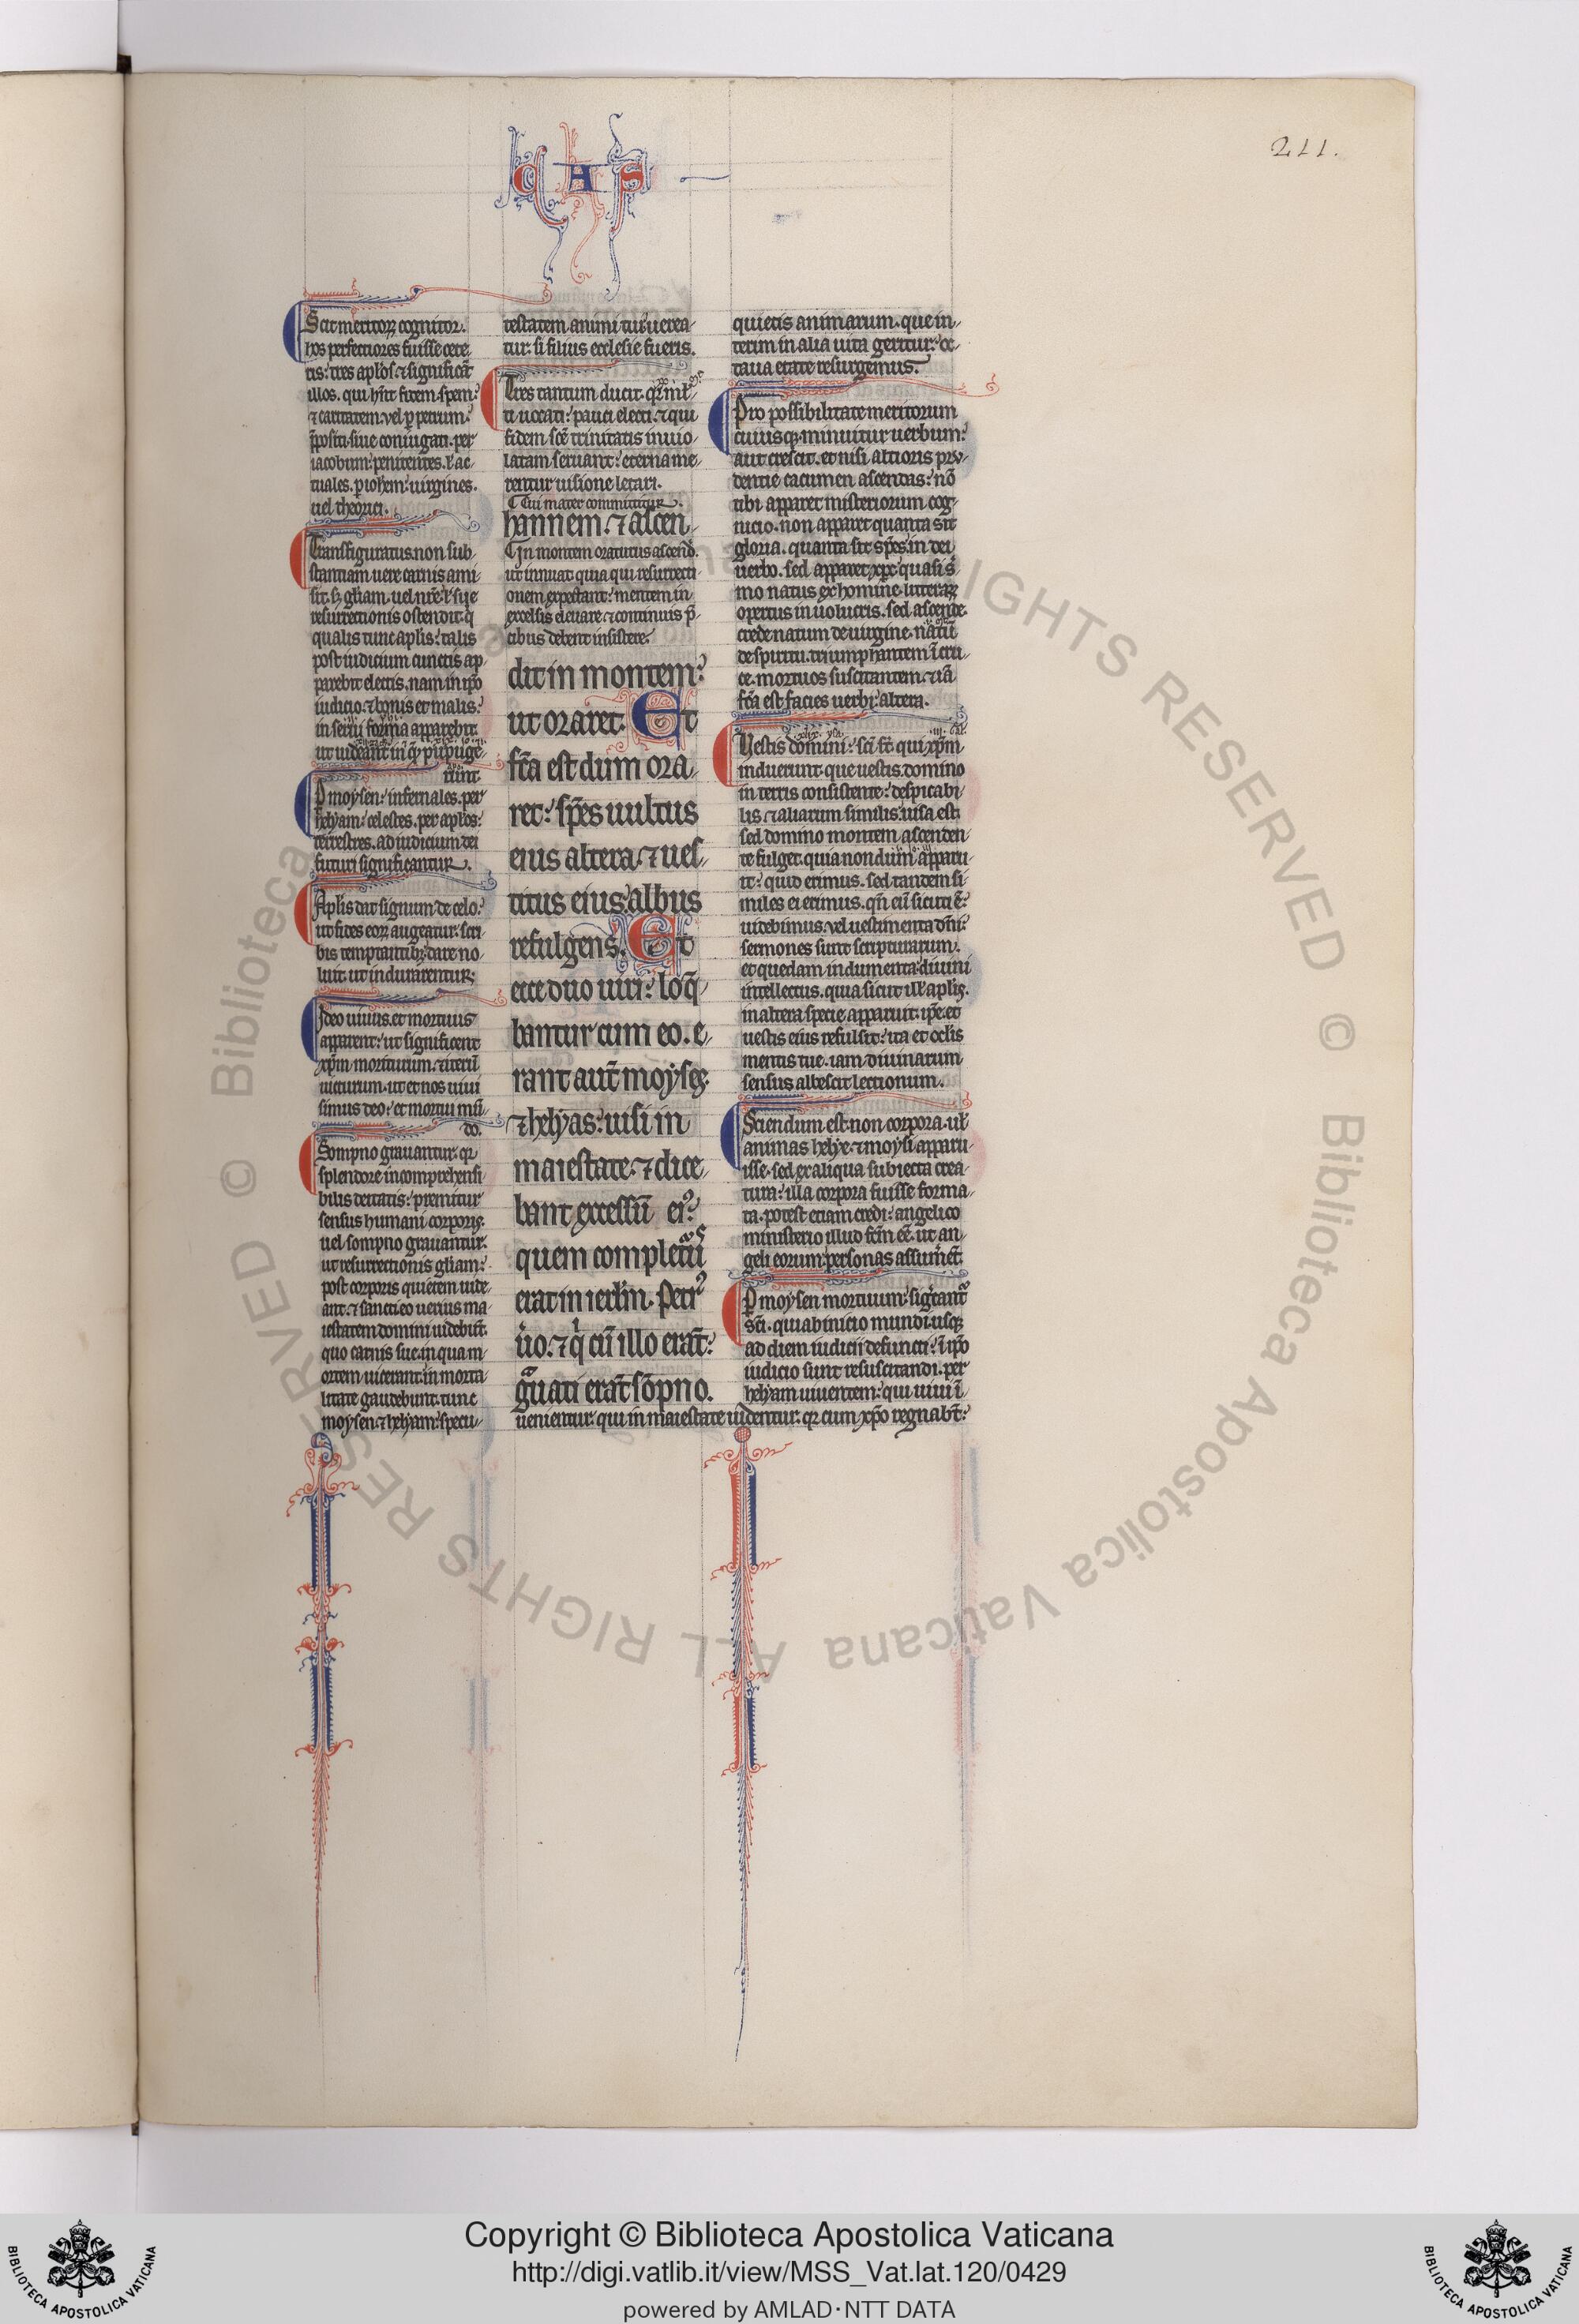 C A S
211.
Scit meritoꝝ cognitor.
hos perfectiores fuisse cete
ris: tres apłos ⁊ significāt
illos. qui hn̄t fidem. spem:
⁊ caritatem. vel ꝑ petrum:
p̄positi. siue coniugati. per
iacobum: penitentes. ł ac
tuales. ꝑ ioh̄em: uirgines.
uel theorici.
Transfiguratus. non sub
stantiam uere carnis ami
sit. sꝫ gl̄iam. uel nr̄e. ł sue
resurrectionis ostendit. q̄
qualis tunc apl̄is: talis
post iudicium cunctis ap
parebit electis. nam in ip̄o
iudicio: ⁊ bonis et malis:
in serui forma apparebit.
ut uideant in q̄ pupuge
runt
ꝑ moysen: infernales. per
helyam: celestes. per apłos:
terrestres. ad iudicium dei
futuri significantur.
Apl̄is dat signum de celo:
ut fides eoꝝ augeatur. scri
bis temptantibꝫ dare no
luit. ut indurarentur.
Ideo uiuus. et mortuus
apparent: ut significent
xp̄m moriturum. ⁊ iterū
uicturum. ut et nos uiui
simus deo: et mortui mū
do.
Sompno grauantur. qꝛ
splendore incomprehensi
bilis deitatis: premitur
sensus humani corporis.
uel sompno grauantur.
ut resurrectionis gl̄iam:
post corporis quietem uide
ant. ⁊ sancti eo uerius ma
iestatem domini uidebūt.
quo carnis sue. in qua m
ortem uicerant. in morta
litate gaudebunt. tunc
moysen. ⁊ helyam: specu
testatem. animi tui uerea
tur: si filius ecclesie fueris.
Tres tantum ducit. qꝛ ml̄
ti uocati: pauci electi. ⁊ qui
fidem sc̄e trinitatis inuio
latam seruant: eterna me
rentur uisione letari.
Cui mater committitur.
hannem. ⁊ ascen
In montem oraturus ascend̄.
ut innuat quia qui resurrecti
onem expectant: mentem in
excelsis eleuare. ⁊ continuis p̄
cibus debent insistere.
dit in montem:
ut oraret. Et
fc̄a est dum ora
ret: sp̄es uultus
eius altera. ⁊ ues
titus eius: albus
refulgens. Et
ecce duo uiri: loq̄
bantur cum eo. e
rant aut̄ moyses.
⁊ helyas: uisi in
maiestate. ⁊ dice
bant excessū eiꝰ:
quem completurꝰ
erat in ierl̄m. Petrꝰ
u̾o. ⁊ q̇ cū illo erāt:
gͣuati erāt sōpno.
quietis animarum. que in
terim in alia uita geritur: oc
taua etate resurgemus.
Pro possibilitate meritorum
cuiusqꝫ minuitur uerbum:
aut crescit. et nisi altioris pru
dentie cacumen ascendas: nō
tibi apparet misteriorum cog
nicio. non apparet quanta sit
gloria. quanta sit sp̄es. in dei
uerbo. sed apparet xp̄c quasi ṡ
mo natus ex homine. litteraꝝ
opertus inuolucris. sed ascende.
crede natum de uirgine. natū
de spiritu. triumphantem ī cru
ce. mortuos suscitantem. ⁊ iā
fc̄a est facies uerbi: altera.
Vestis domini: sc̄i st̄ qui xp̄m
induerunt. que uestis. domino
in terris consistente: despicabi
lis ⁊ aliarum similis: uisa est.
sed domino montem ascenden
te fulget. quia nondum apparu
it: quid erimus. sed tandem si
miles ei erimus. qn̄ eū sicuti ē:
uidebimus. vel uestimenta dn̄i:
sermones sunt scripturarum.
et quedam indumenta: diuini
intellectus. quia sicut ill̄ aplīs.
in altera specie apparuit. ip̄e. et
uestis eius refulsit: ita et oc̄lis
mentis tue. iam diuinarum
sensus albescit lectionum.
Sciendum est. non corpora. uł
animas helye. ⁊ moysi apparu
isse. sed ex aliqua subiecta crea
tura: illa corpora fuisse forma
ta. potest etiam credi: angelico
ministerio illud fc̄m eē. ut an
geli eorum: personas assumer̄t.
ꝑ moysen mortuum: signant
sc̄i. qui ab inicio mundi. usqꝫ
ad diem iudicii defuncti: ī ip̄o
iudicio sunt resuscitandi. per
helyam uiuentem: qui uiui ī
uenientur. qui in maiestate uidentur. qꝛ cum xp̄o regnabt̄:
Copyright © Biblioteca Apostolica Vaticana
http://digi.vatlib.it/view/MSS_Vat.lat.120/0429
powered by AMLAD·NTT DATA
BIBLIOTECA APOSTOLICA VATICANA
BIBLIOTECA APOSTOLICA VATICANA
© Biblioteca Apostolica Vaticana ALL RIGHTS RESERVED